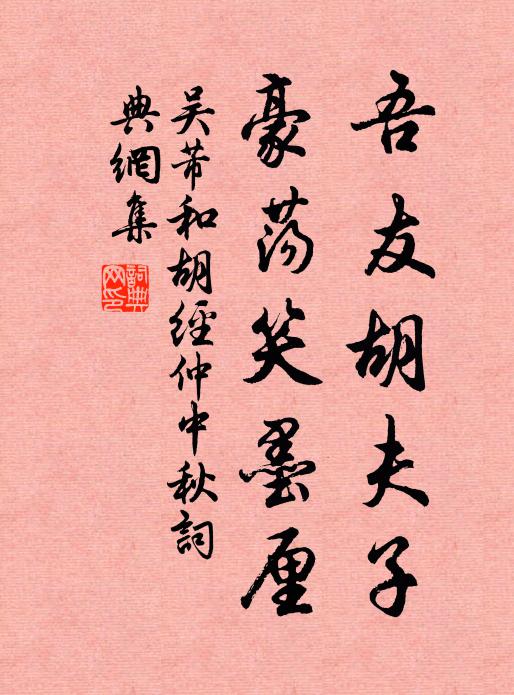 吾友胡夫子
豪荡笑墨厘
吴芾和胡經仲中秋詞
典網集
詞典網印